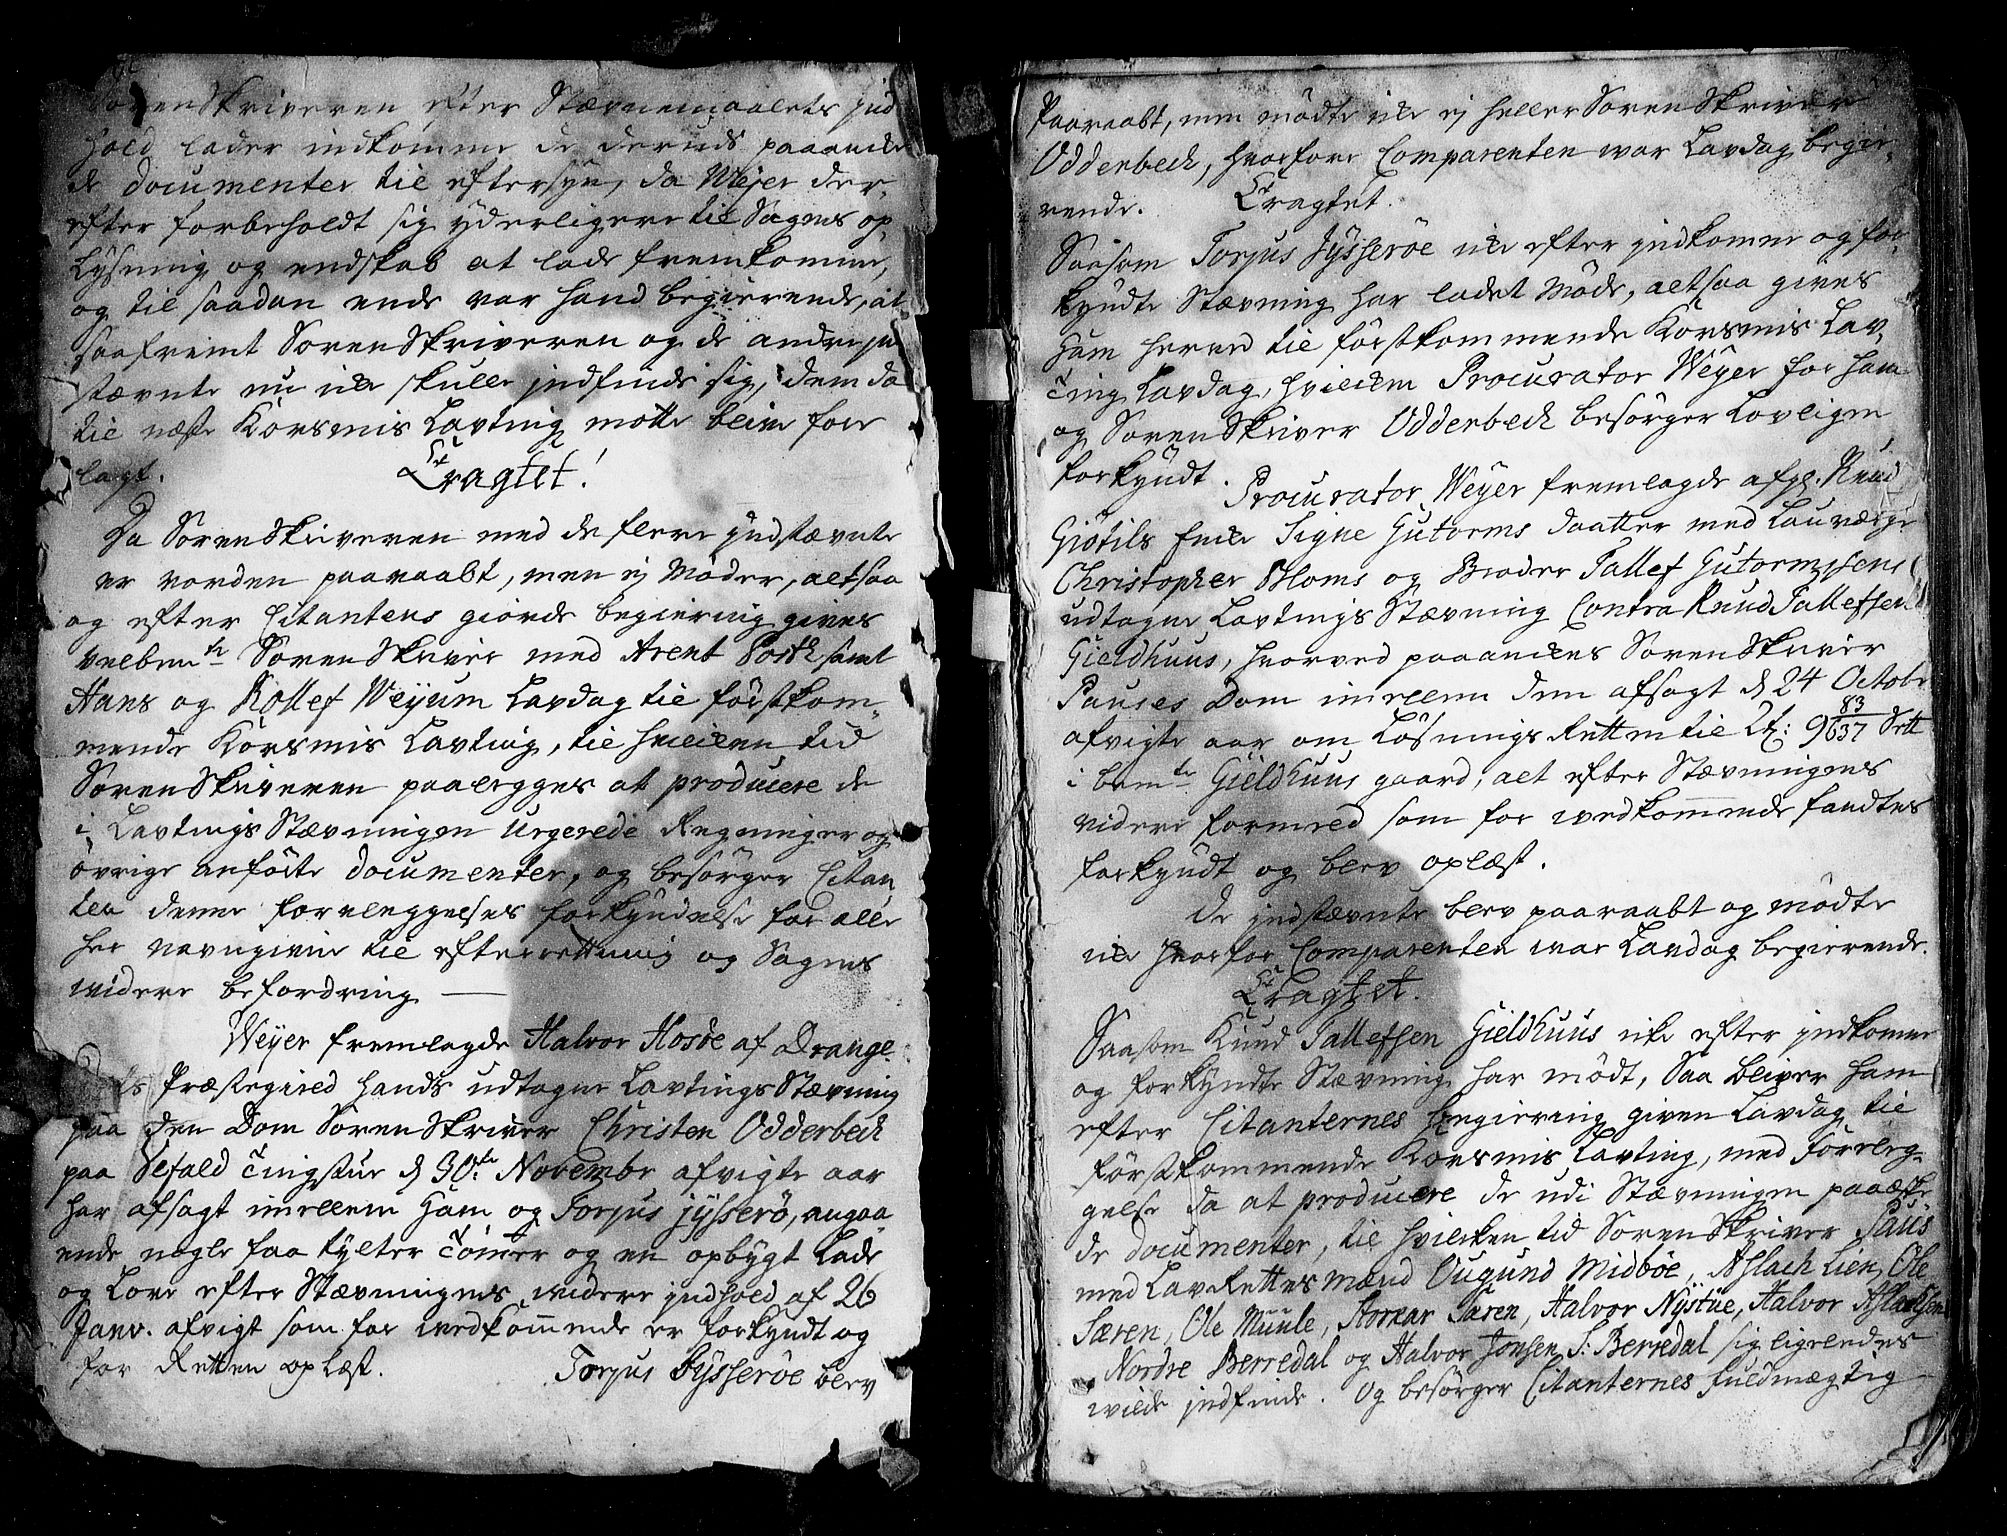 SorenSkriveren efter Stævnemaalets ind
hold lader indkomme de derudj paaancke
de documenter til eftersyn, da Weyer der-
efter forbeholdt sig yderligere til Sagens op
lysning og endskab at lade fremkomme,
og til saadan ende var hand begierende, at
saafremt SorenSkriveren og de andre jn
stævnte nu icke skulle jndfinde sig, dem da
til næste Korsmis Lavting motte blive fore
lagt.
Eragtet!
Da SorenSkriveren med de flere jndstævnte
er vorden paaraabt, men ej Møder, altsaa
og efter Citantens giorde begiering gives
velbemte SorenSkriver med Arent Post samt
Hans og Rollef Weyum Lavdag til førstkom-
mende Korsmis Lavting, til hvilcken tid
SorenSkriveren paalegges at producere de
i LavtingsStævningen urgerede Regninger og
øvrige anførte documenter, og besørger Citan
ten denne foreleggelses forkyndelse for alle
her navngivne til efterretning og Sagens
widere befordring —
Weyer fremlagde Halvor Hosøe af Drange
ds Præstegield hands udtagne LavtingsStævning
paa den Dom SorenSkriver Christen Odderbeck
paa Sefald Tingstue d 30te Novembr afvigte aar
har afsagt imellem ham og Torjus Jysserø, angaa-
ende nogle faa tylter Tømer og en opbygt Lade
og Love efter Stævningens widere jndhold af 26
Janv. afvigt som for wedkommende er forkyndt og
for Retten oplæst.
Torjus Jysserøe blev
Paaraabt, men mødte icke ej heller SorenSkriver
Odderbeck, hvorfore Comparenten war Lavdag begie-
rende.
Eragtet.
Saasom Torjus Jysserøe icke efter jndkomne og for
kyndte Stævning har ladet Møde, altsaa gives
ham herved til førstkommende Korsmis Lav-
Ting Lavdag, hvilcken Procurator Weyer for ham
og SorenSkriver Odderbeck besørger Lovligen
forkyndt.
Procurator Weyer fremlagde afg. Knud
Giøtils Encke Signe Gutorms daatter med Lauværge
Christopher Bloms og Broder Tallef Gutormsens
udtagne LavtingsStævning Contra Knud Tallefsen
Gieldhuus, hvorved paaanckes SorenSkriver
Pauses Dom imellem dem afsagt d 24 Octobr
afvigte aar om LøsningsRetten til 9 83/637 Sett
i bemte Gieldhuus gaard, alt efter Stævningens
videre formeld som for wedkommende fandtes
forkyndt og blev oplæst.
De jndstævnte blev paaraabt og mødte
icke hvorfor Comparenten war Lavdag begierende.
Eragtet.
Saasom Knud Tallefsen Gieldhuus icke efter jndkomne
og forkyndte Stævning har mødt, Saa bliver ham
efter Citanternes begiering given Lavdag til
førstkommende Korsmis Lavting, med Foreleg-
gelse da at producere de udi Stævningen paaæske
de documenter, til hvilcken tid SorenSkriver Paus
med LavRettesmænd Ougund Midbøe, Aslach Lien, Ole
Særen, Ole Muule, Særen, Halvor Nystüe, Halvor Aslachsen
Nordre Berredal og Halvor Jonsen S: Berredal sig ligeledes
wilde jndfinde. Og besørger Citanternes fuldmægtig